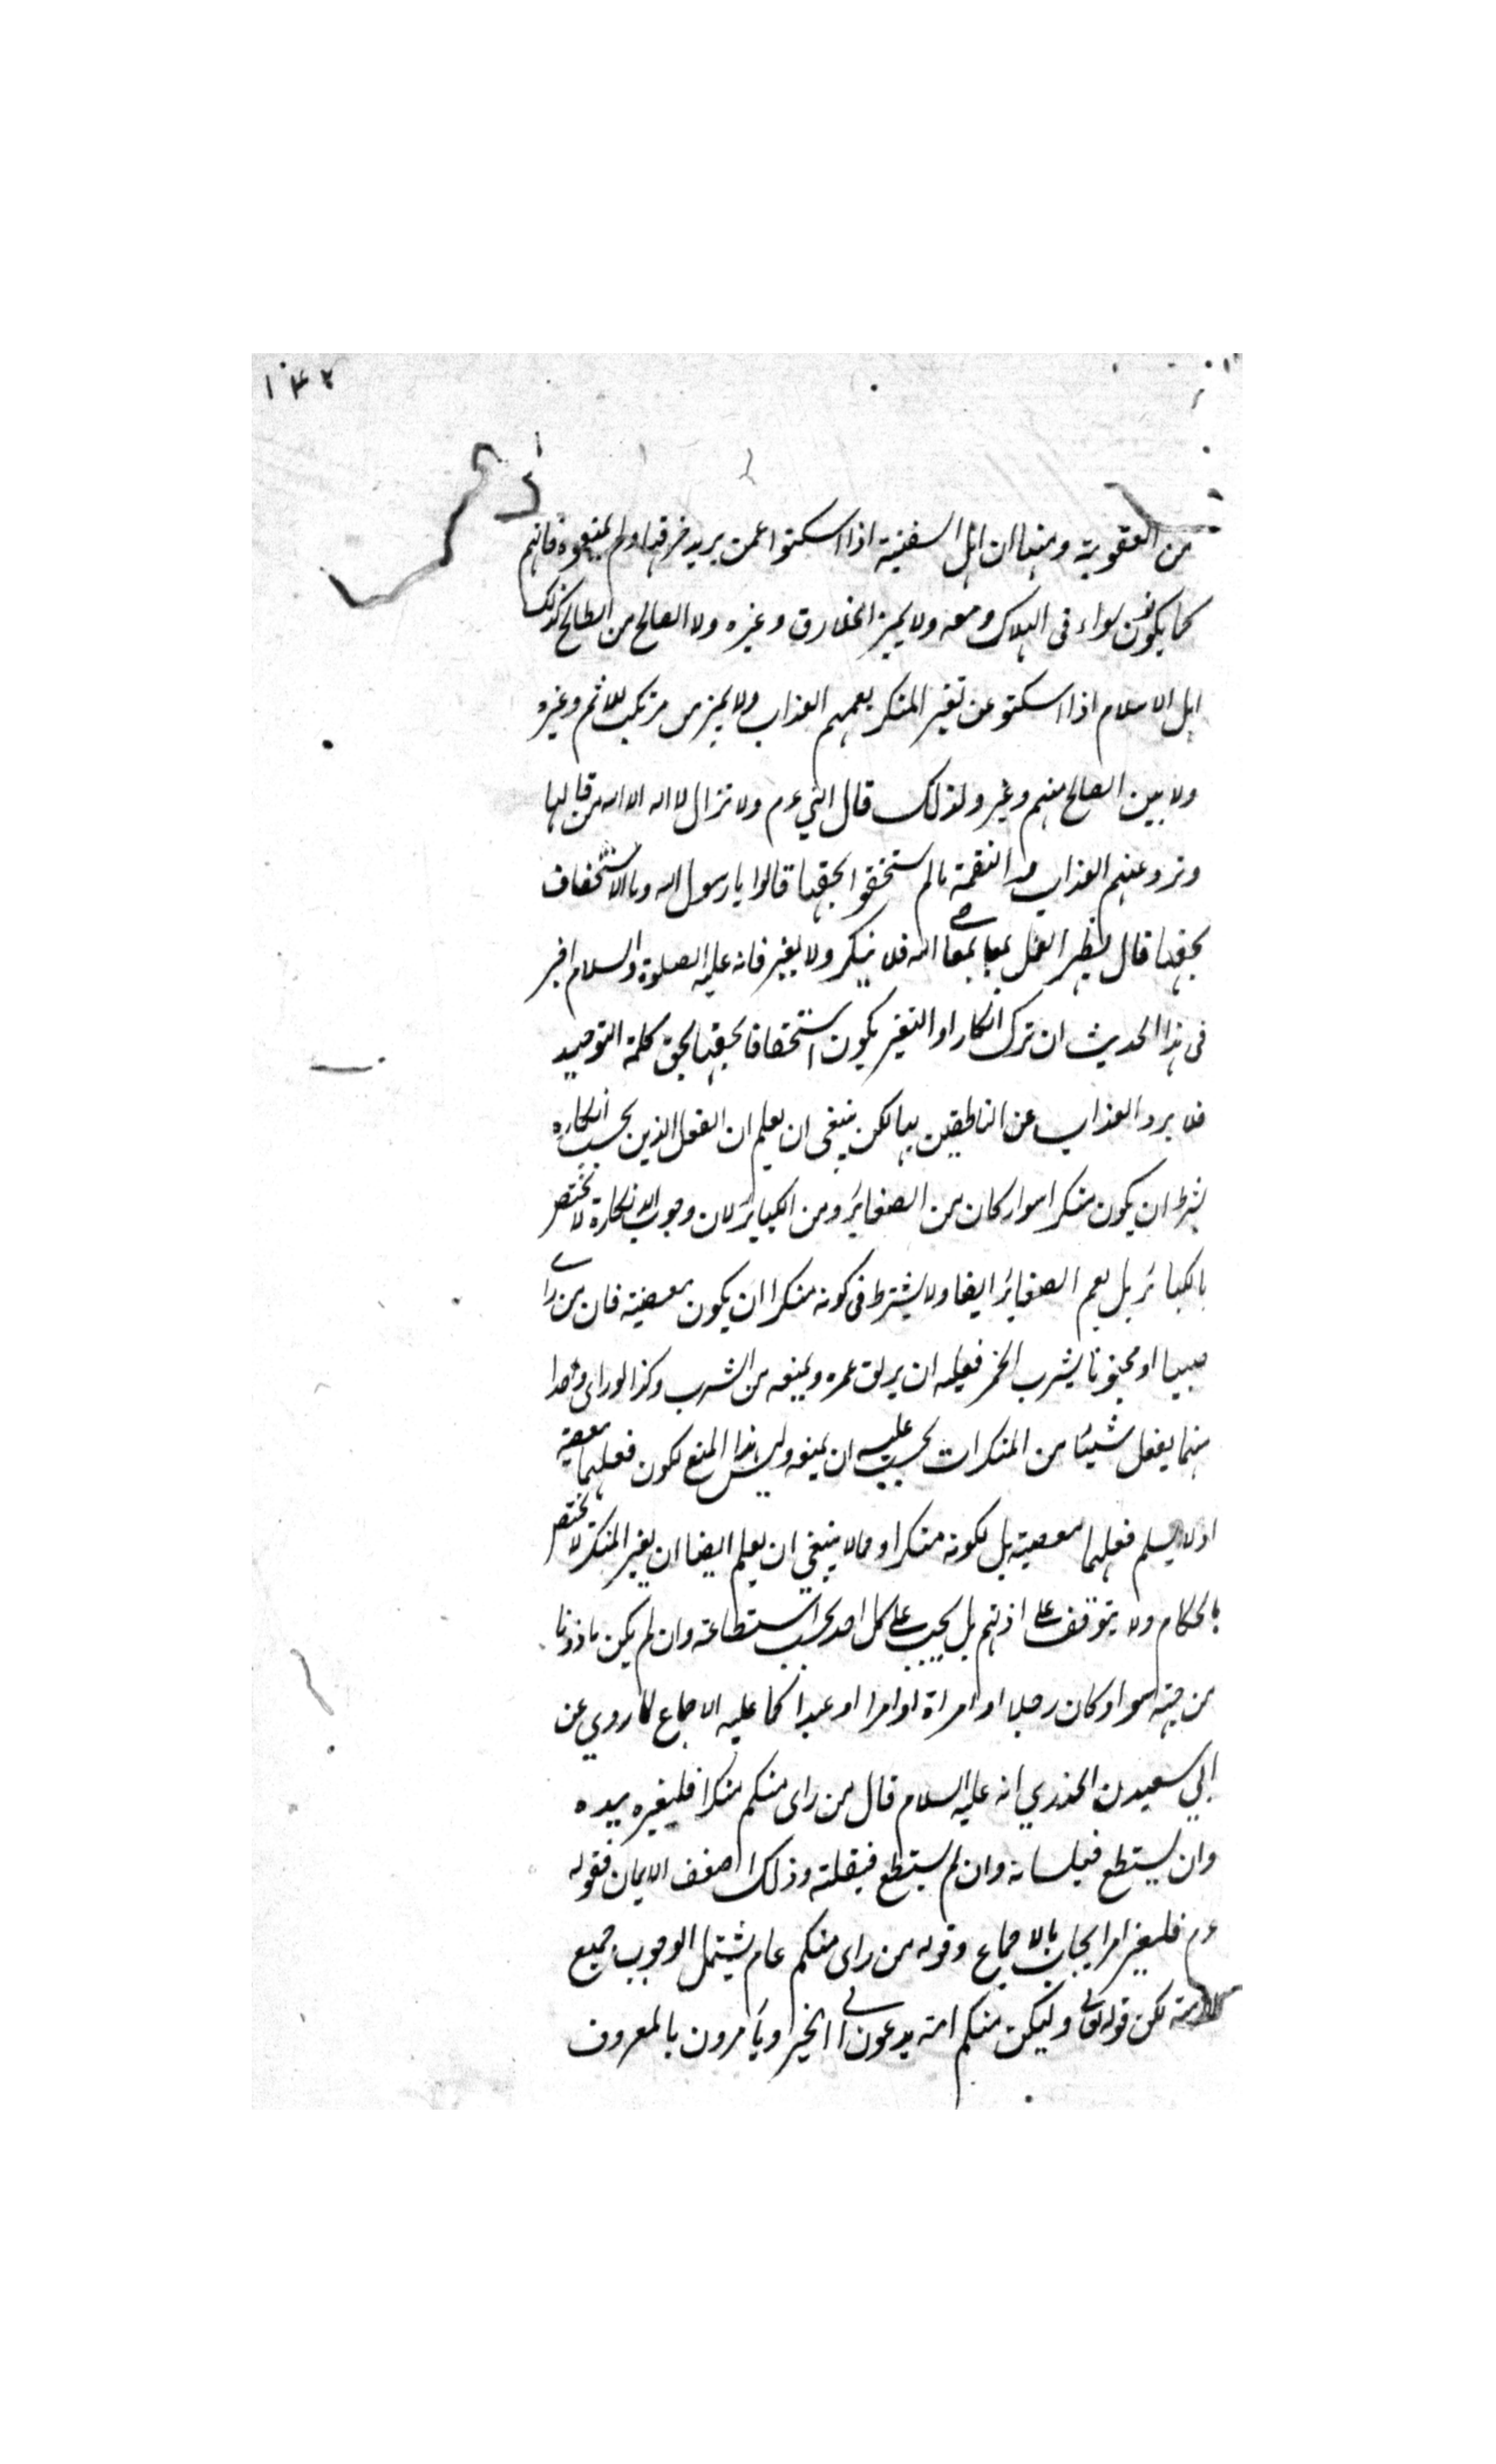 ١٤٢
من العقوبة ومنها ان اهل السفينة اذا اسكتوا عمن يريد خرقها ولم يمنعوه فانهم
كما يكونون سواء فى الهلاك ومعه ولا يميز الخارق وغيره ولا الصالح من الطالح كذلك
اهل الاسلام اذا اسكتو عن تغير المنكر يعمهم العذاب ولا يميز من مرتكب للاثم وغيره
ولا بين الصالح منهم وغير ولذلك قال النبي عم ولا تزال لا اله الا الله من قالها
وترد عنهم العذاب والنقمة مالم يستخفوا بحقها قالوا يا رسول الله وما الاستخفاف
بحقها قال يظهر العمل بمعاصى الله فلا ينكر ولا يغير فانه عليه الصلوة والسلام اخبر
فى هذا الحديث ان ترك انكار او التغير يكون استخفافا بحقها بحق كلمة التوحيد
فلا يرد العذاب عن الناطقين بها لكن ينبغى ان يعلم ان الفعل الذين يجب انكاره
بشرط ان يكون منكرا سوار كان من الصغاير ومن الكباير لان وجوب الانكارة لا يختص
بالكبائر بل يعم الصغاير ايضا ولا يشترط فى كونه منكرا ان يكون معصية فان من راى
صبيا او مجنونا يشرب الخمر فعليه ان يريق خمره ويمنعه من الشرب وكذا لو راى واحدا
منهما يفعل شيئا من المنكرات يجب عليه ان يمنعه وليس هذا المنع لكون فعلهما معصية
اذ لا يسلم فعلهما معصية بل لكونه منكرا ومالا ينبغي ان يعلم ايضا ان يغير المنكر لا يختص
بالحكام ولا يتوقف على اذنهم بل يجب على كل احد بحسب استطاعته وان لم يكن ماذونا
من جهتهم سواو كان رجلا او امراة او امرا او عبدا كما عليه الاجماع لما روي عن
ابي سعيدن الخدري انه عليه السلام قال من راى منكم منكرا فليغيره بيده
وان يستطع فبلسانه وان لم يستطع فبقلبه وذلك اضعف الايمان فقوله
عم فليغير امر ايجاب بالاجماع وقوله من راى منكم عام يشتمل الوجوب جميع
الامة لكن قوله تعالى وليكن منكم امة يدعون الى الخير ويأمرون بالمعروف